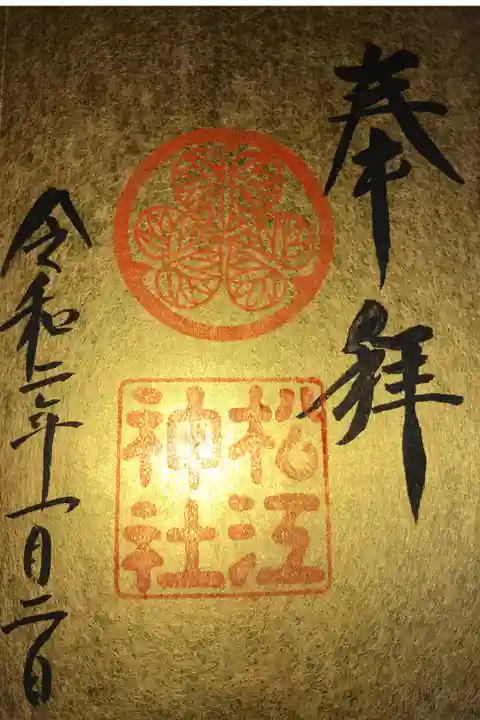 奉拝
松江
神社
令和二年一月二日